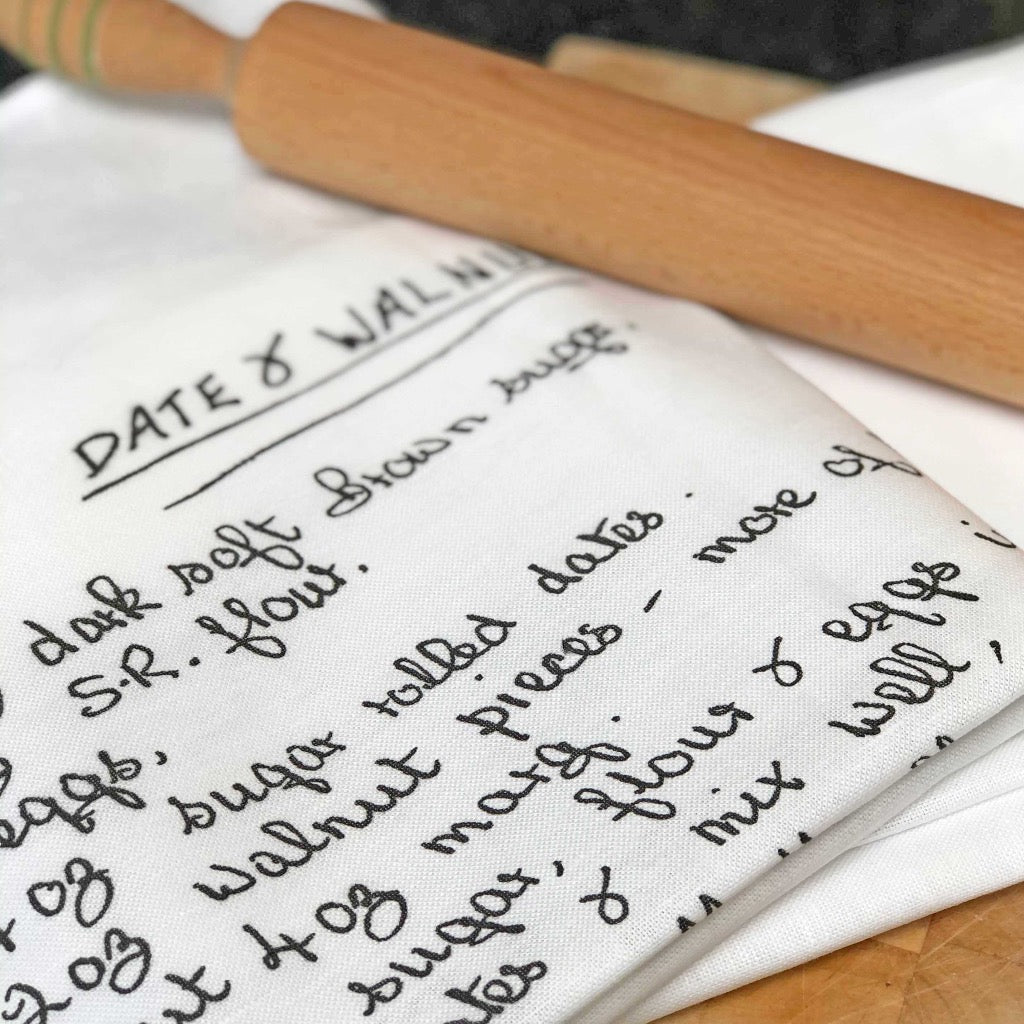 DATE & WALNU
dark soft brown sugar.
S.R. flour.
eggs,
oz sugar rolled dates.
2 oz walnut pieces - more of
4 oz marg.
sugar, flour & eggs
& mix well,